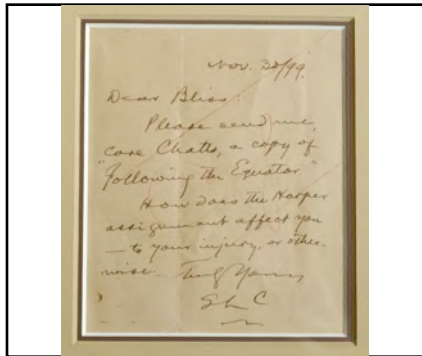 Nov. 20/99.
Dear Bliss:
Please send me,
"care Chatto, a copy of
Following the Equator"
How does the Harper
assignment affect you
— to your injury, or other-
wise. Truly Yours,
SLC